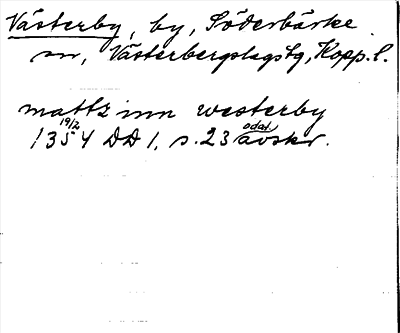 Västerby, by, Söderbärke
sn, Västerbergslagstg, Kopp. l.
mattz inn westerby
19/2
1354 DD 1, s. 23 odat. avskr.